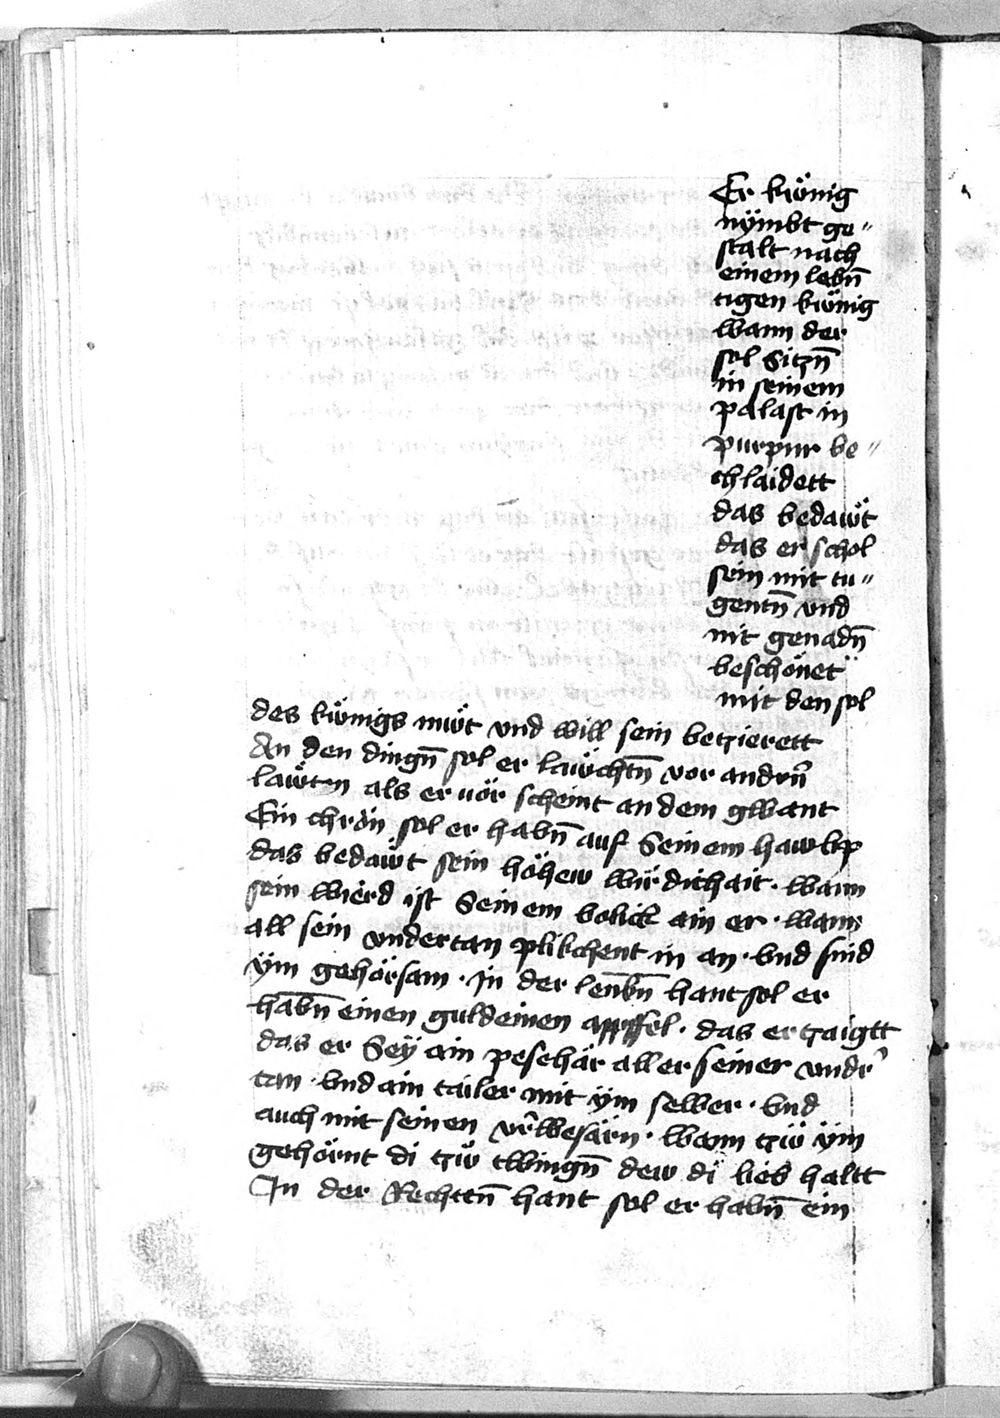 Er kwönig
nÿmbt ge〃
stalt nach
einem lebn̄
tigen kwönig
wann der
sol Sitzn̄
in seinem
palast in
purpur be〃
chlaidett
das bedawt̋
das er schol
sein mit tu〃
gentn̄ vnd
mit genadn̄
beschönet
mit den sol
des kwönigs mwöt vnd will sein betzierett
An den dingn̄ sol er lawchtn̄ vor andrn̄
lawtn als er vör scheint an dem gwant
Ein chrön sol er habn̄ auf Seinem hawbp
das bedawt̋ sein höhew wirdichait · wann
sein wierd ist Seinem volkch ain er · wann
all sein vndertan plikchent in an · vnd sind
ÿm gehörsam · In der lenkn̄ hant sol er
habn̄ einen guldeinen appffel · das er tzaigtt
das er Seÿ ain peschär aller seiner vndr̄
tan · vnd ain tailer mit ÿm selber · vnd
auch mit seinen vr̄wesärn · wann tzwö ÿm
gehörnt di tzwö twingn̄ dew di lieb haltt
In der Rechttn̄ hant sol er habn̄ ein